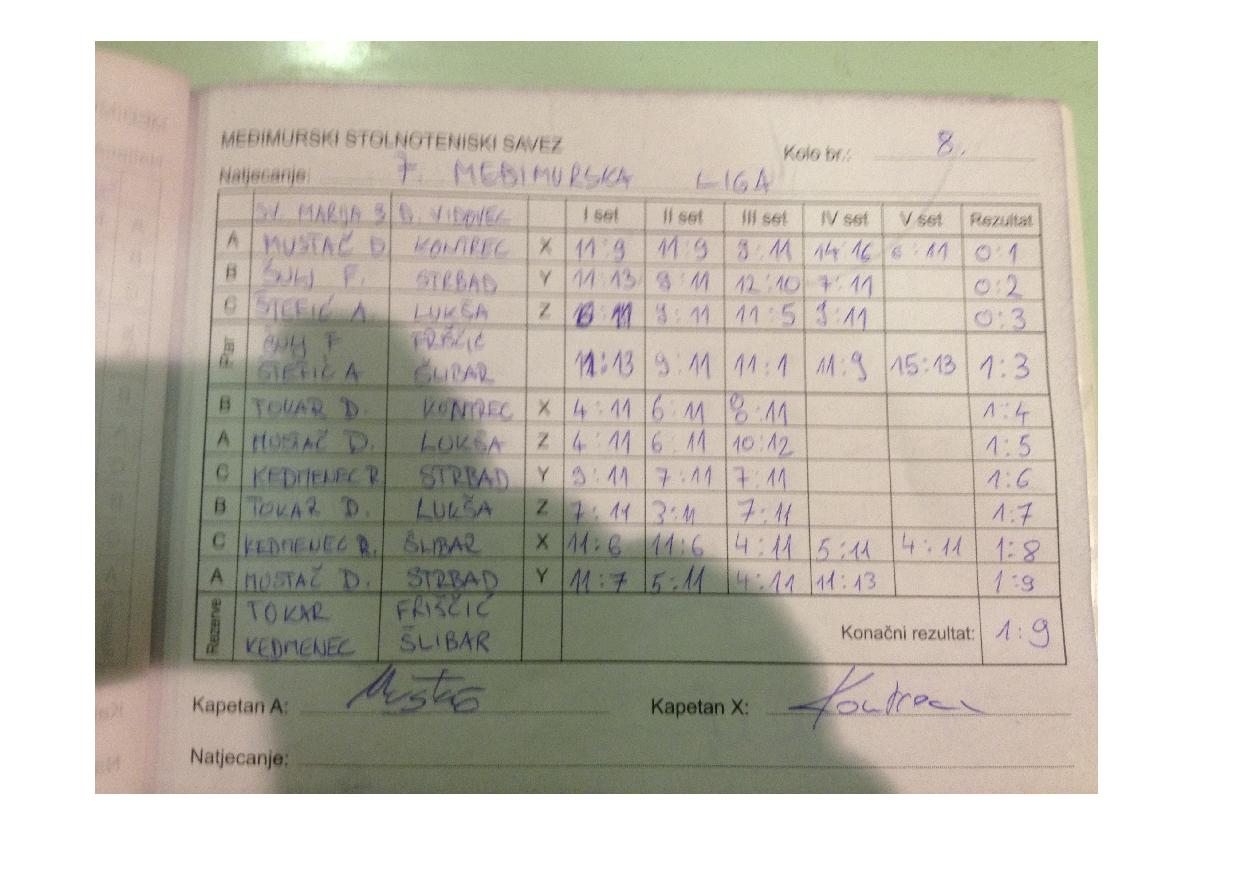 MEĐIMURSKI STOLNOTENISKI SAVEZ
Kolo br.: 8.
Natjecanje: 7. MEĐIMURSKA LIGA
SV. MARIJA 3 D. VIDOVEC I set II set III set IV set V set Rezultat
A MUSTAČ D. KONTREC X 11:9 11:9 9:11 14:16 6:11 0:1
B ŠULJ F. STRBAD Y 11:13 9:11 12:10 7:11 0:2
C ŠTEFIĆ A. LUKŠA Z 11 9:11 11:5 9:11 0:3
Par ŠULJ F FRIŠČIĆ
ŠTEFIĆ A ŠLIBAR 11:13 9:11 11:1 11:9 15:13 1:3
B TOKAR D. KONTREC X 4:11 6:11 8:11 1:4
A MUSTAČ D. LUKŠA Z 4:11 6:11 10:12 1:5
C KEDMENEC R STRBAD Y 9:11 7:11 7:11 1:6
B TOKAR D. LUKŠA Z 7:11 3:11 7:11 1:7
C KEDMENEC R. ŠLIBAR X 11:6 11:6 4:11 5:11 4:11 1:8
A MUSTAČ D. STRBAD Y 11:7 5:11 4:11 11:13 1:9
Rezerve TOKAR FRIŠČIĆ
KEDMENEC ŠLIBAR Konačni rezultat: 1:9
Kapetan A: Mustač Kapetan X: Kontrec
Natjecanje: